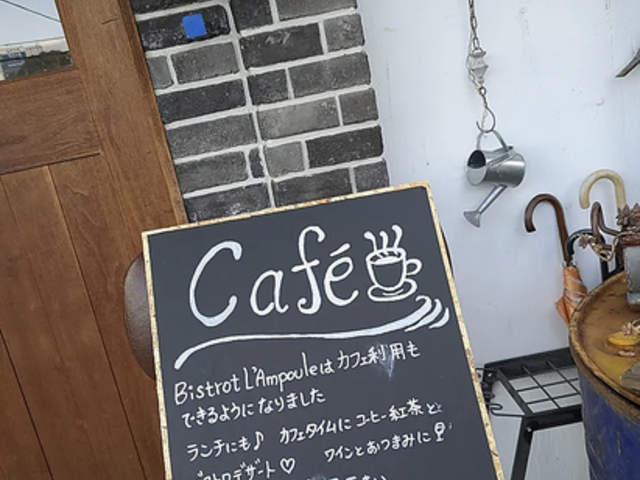 Café
Bistrot L'Ampouleはカフェ利用も
できるようになりました
ランチにも♪ カフェタイムにコーヒー紅茶と
ビストロデザート♡ ワインとおつまみに